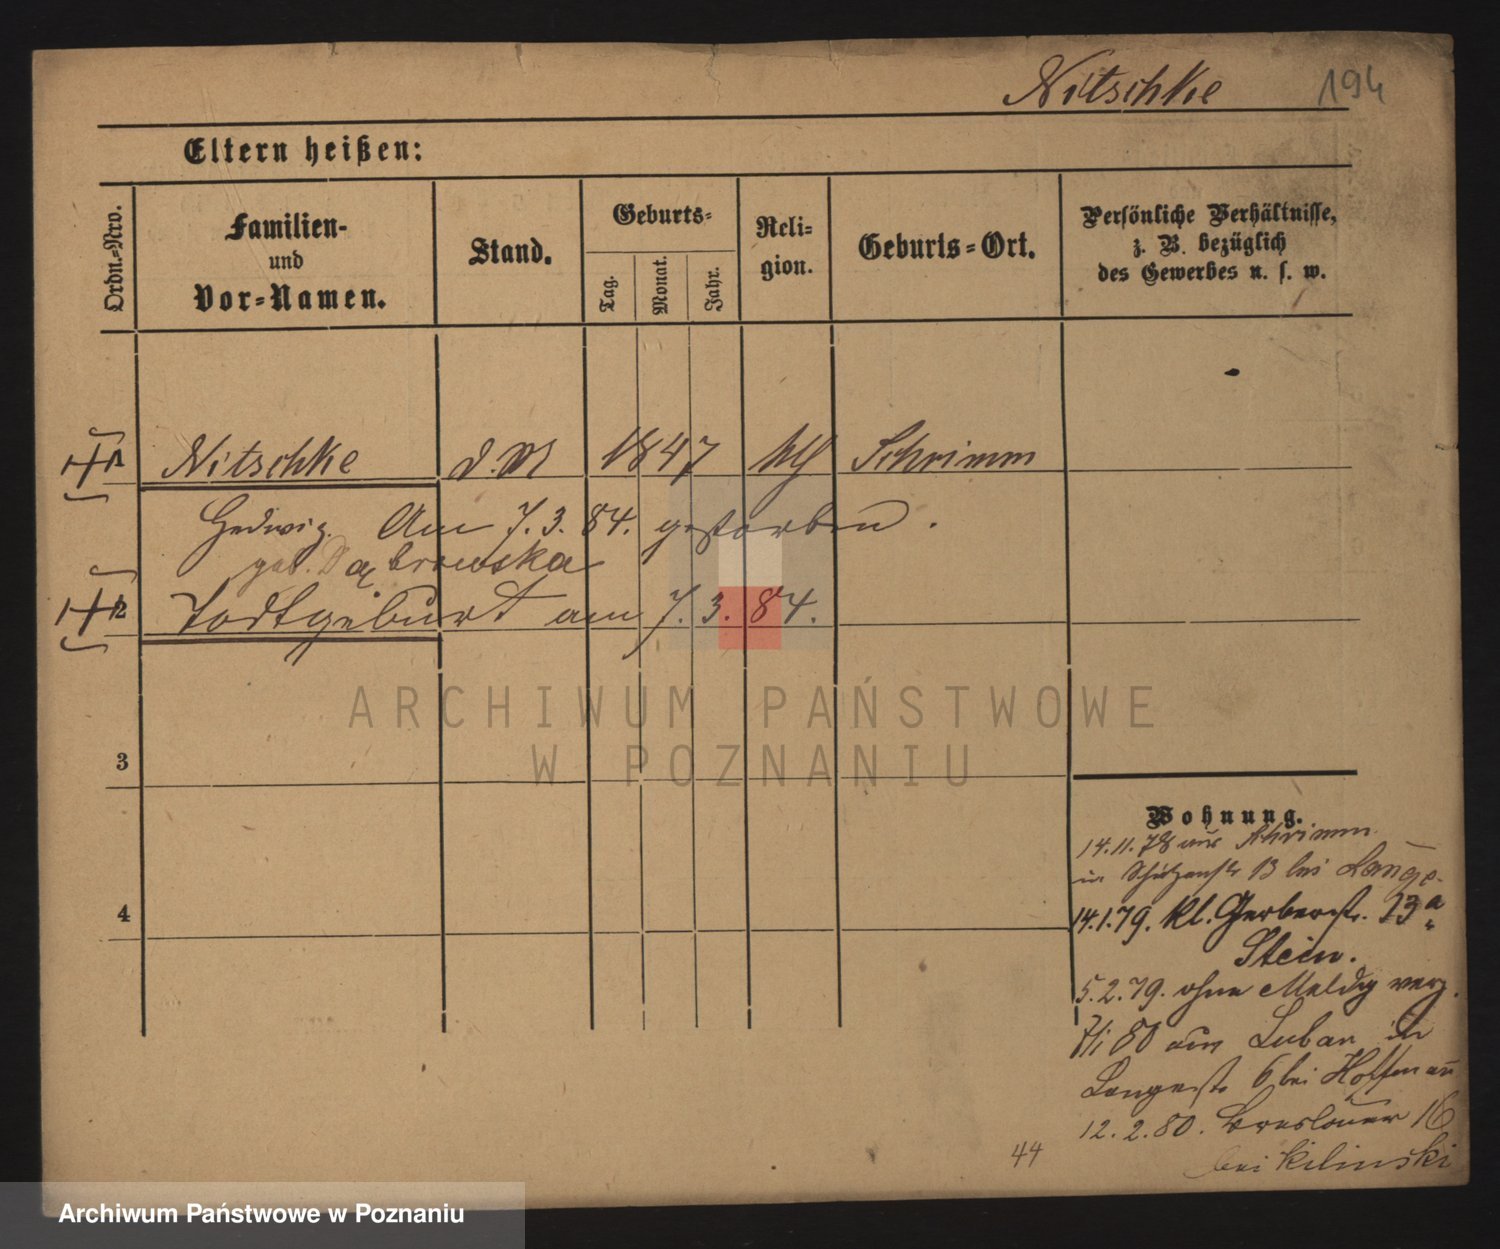 Nitschke 194
Eltern heißen:
Ordn.=Nro.
Familien-
und
Vor=Namen.
Stand.
Geburts=
Tag.
Monat.
Jahr.
Reli-
gion.
Geburts=Ort.
Persönliche Verhältnisse,
z. B. bezüglich
des Gewerbes u. s. w.
1 Nitschke d. M 1847 Schrimm
Hedwig. Am 7. 3. 84. gestorben.
geb. Dąbrowska
2 Todtgeburt am 7. 3. 84.
ARCHIWUM PAŃSTWOWE
W POZNANIU
3
4
Wohnung.
14. 11. 78 aus Schrimm
in Schützenstr 13 bei Lange.
14. 1. 79. Kl. Gerberstr. 13 a
Stein.
5. 2. 79. ohne Meldg verz.
7/1 80 aus Luban in
Langestr 6 bei Hoffmann
12. 2. 80. Breslauer 16
bei Kilinski
44
Archiwum Państwowe w Poznaniu